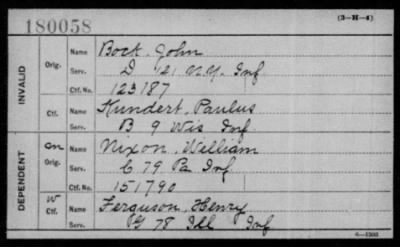 180058
(3-H-4)
INVALID
Orig. Name Bock, John
Serv. D 121 N.Y. Inf
Ctf. No. 123187
Ctf. Name Kundert, Paulus
Serv. B 9 Wis Inf
DEPENDENT
Orig. Name Nixon, William
Serv. C 79 Pa Inf
Ctf. No. 151790
W
Ctf. Name Ferguson, Henry
Serv. 78 Ill Inf